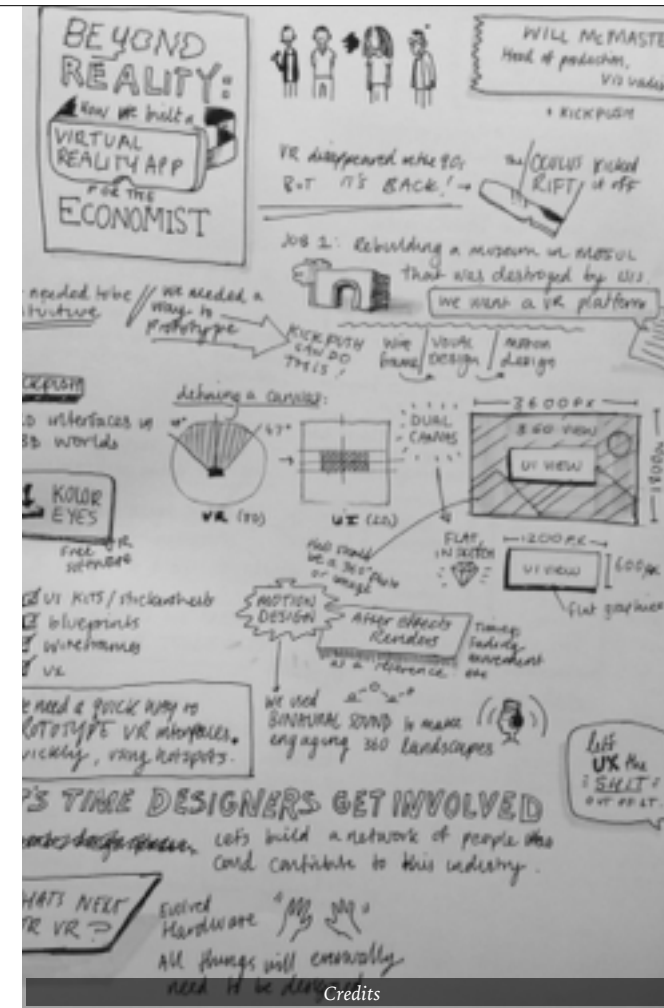 BEYOND
REALITY:
How we built a
VIRTUAL
REALITY APP
FOR THE
ECONOMIST
WILL McMASTE
Head of production,
+ KICKPUSH
VR disappeared in the 90s
BUT IT'S BACK!
The OCULUS kicked
RIFT it off
JOB 1: Rebuilding a museum in MOSUL
that was destroyed by ISIS.
we want a VR platform
needed to be
we needed a
way to
prototype
KICKPUSH
CAN DO
THIS!
wire
frame
VISUAL
DESIGN
motion
design
defining a canvas:
D interfaces in
3D worlds
VR (3D)
UI (2D)
DUAL
CANVAS
3600PX
360 VIEW
UI VIEW
1800PX
KOLOR
EYES
free VR
software
FLAT,
IN SKETCH
1200PX
UI VIEW
600PX
flat graphics
be a 360° photo
or image
UI KITS / stickersheets
blueprints
wireframes
UX
MOTION
DESIGN
After Effects
Renders
as a reference
Timing
fading
movement
etc
e need a quick way to
ROTOTYPE VR interfaces.
uickly, using hotspots.
we used
BINAURAL SOUND to make
engaging 360 landscapes
let's
UX the
SHIT
OUT OF IT.
'S TIME DESIGNERS GET INVOLVED
Lets build a network of people who
can contribute to this industry.
HATS NEXT
R VR?
Evolved
Hardware
All things will eventually
need to be designed
Credits